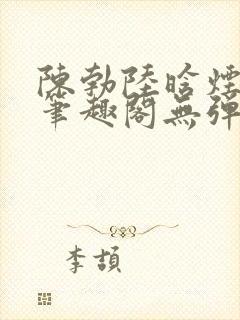 陳勃陸晗煙
筆趣閣無彈
李頡